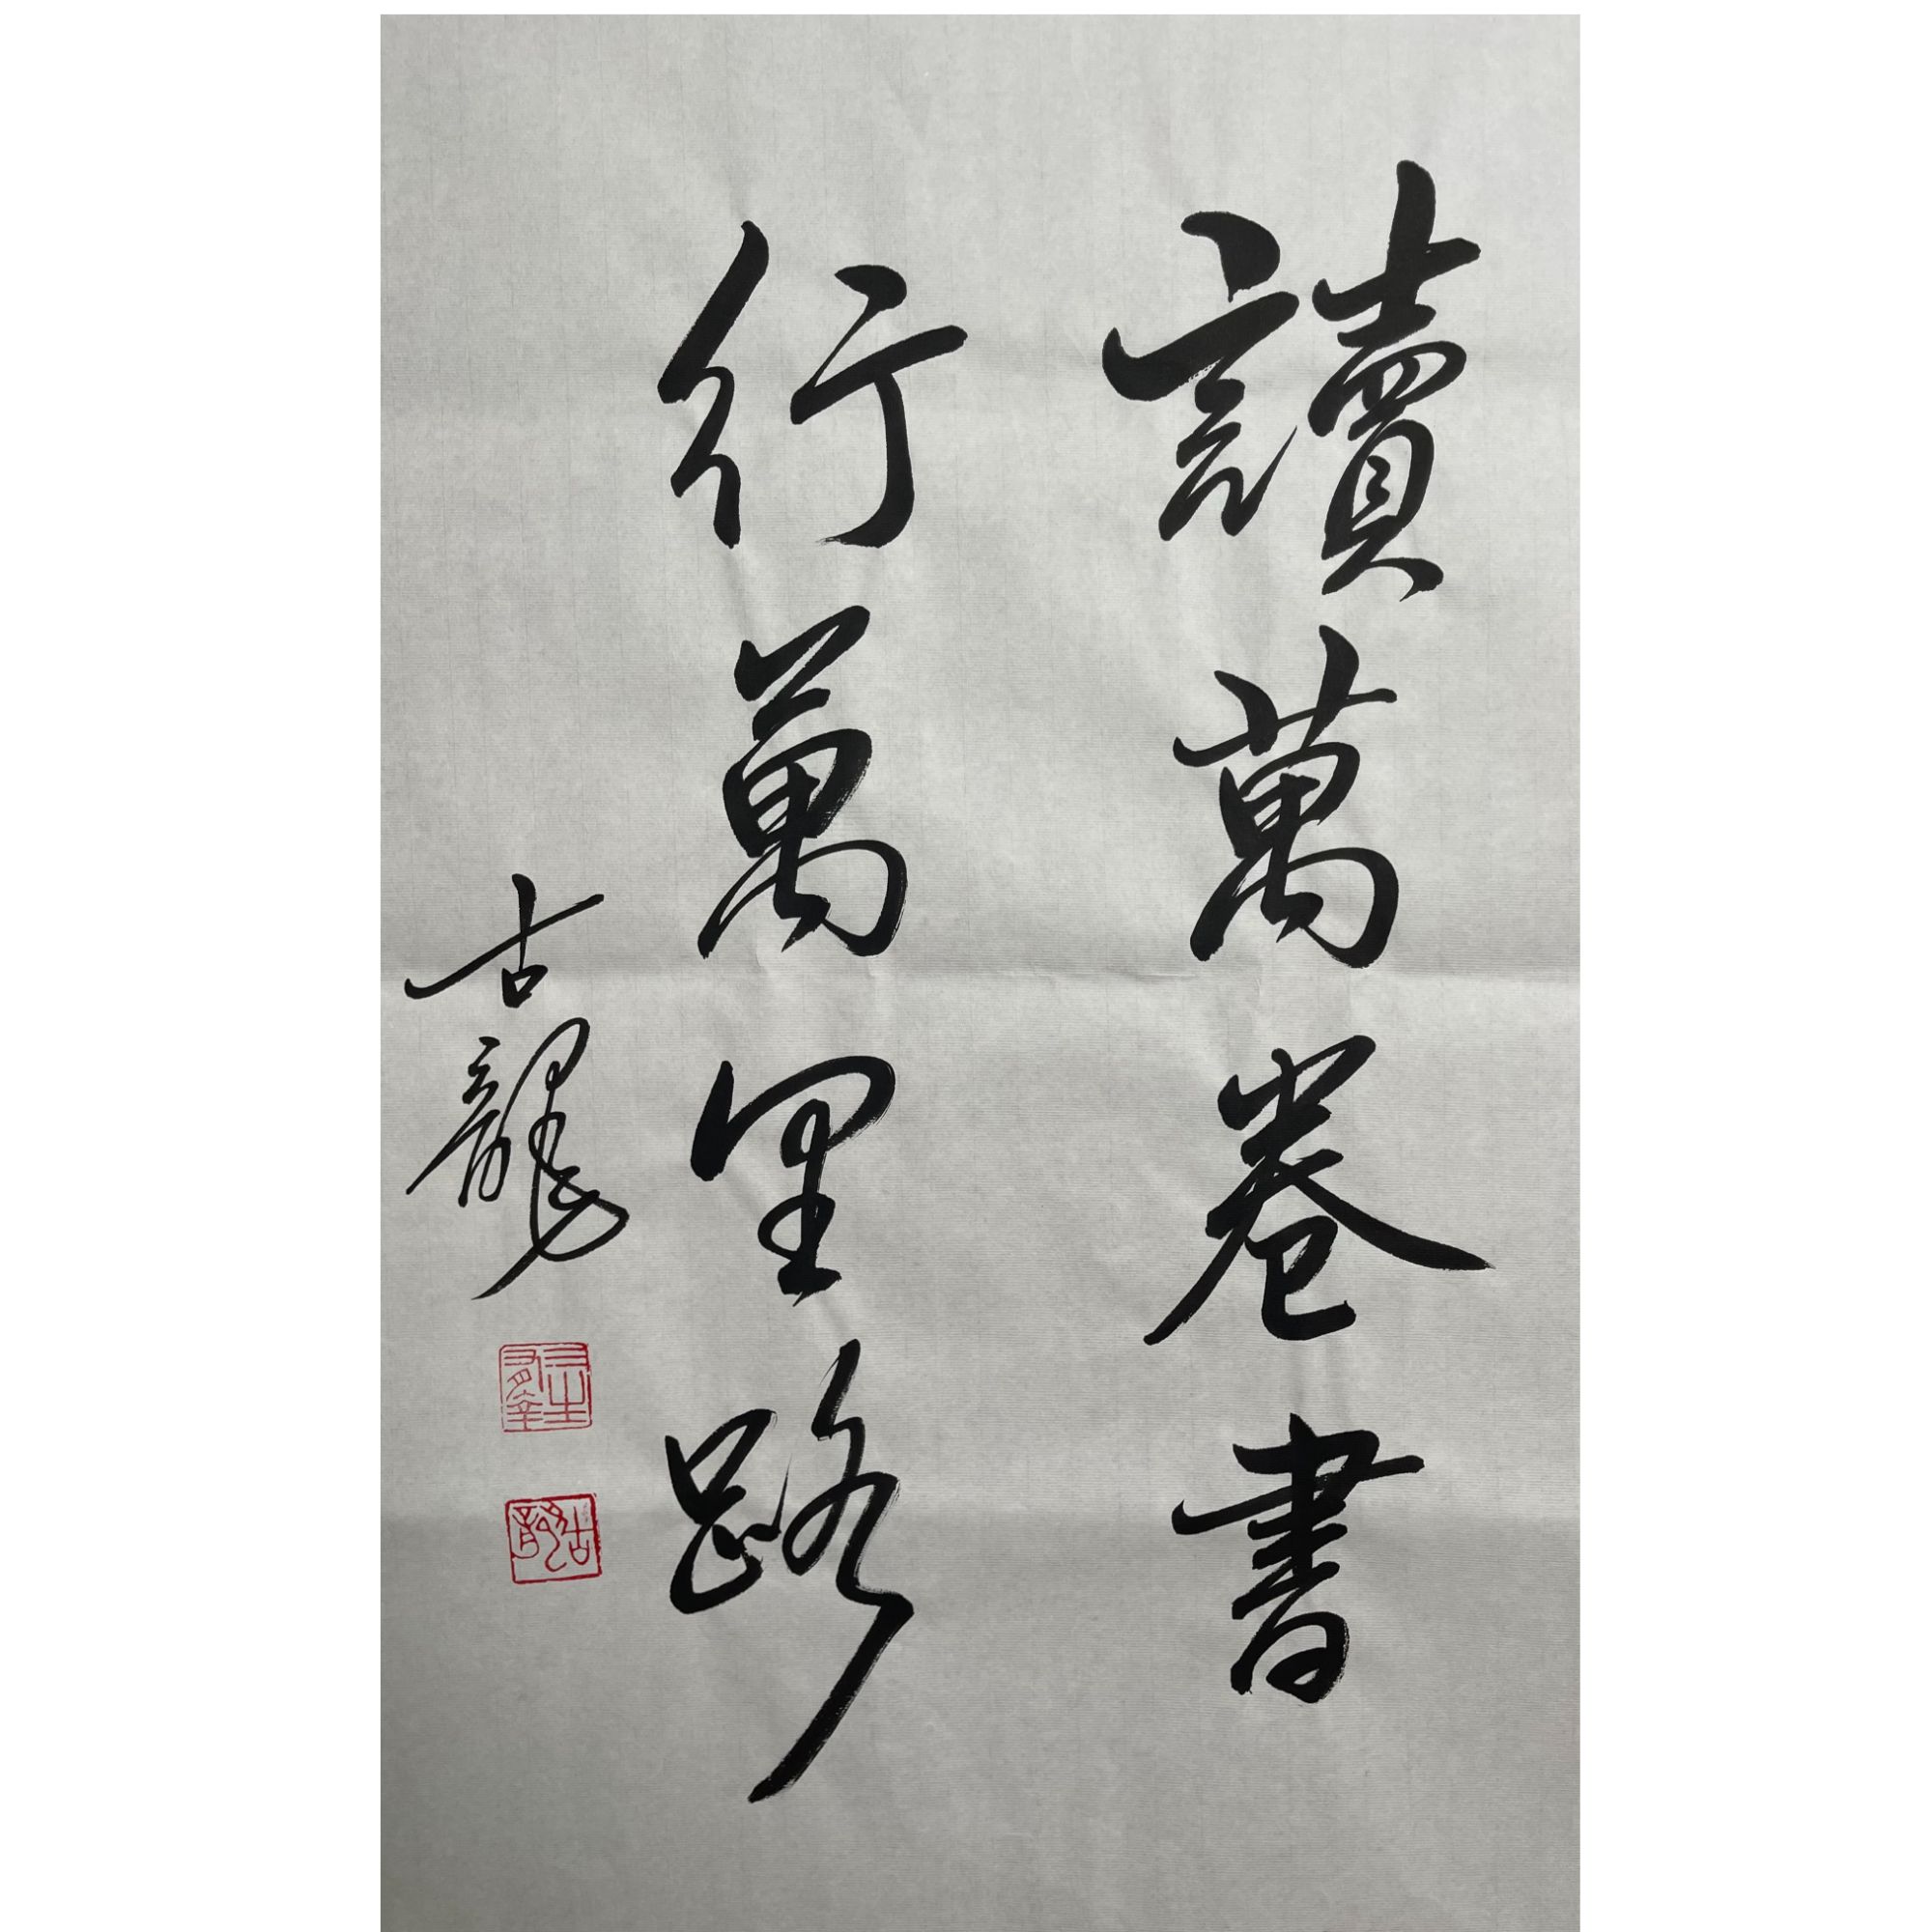 讀萬卷書
行萬里路
古龍